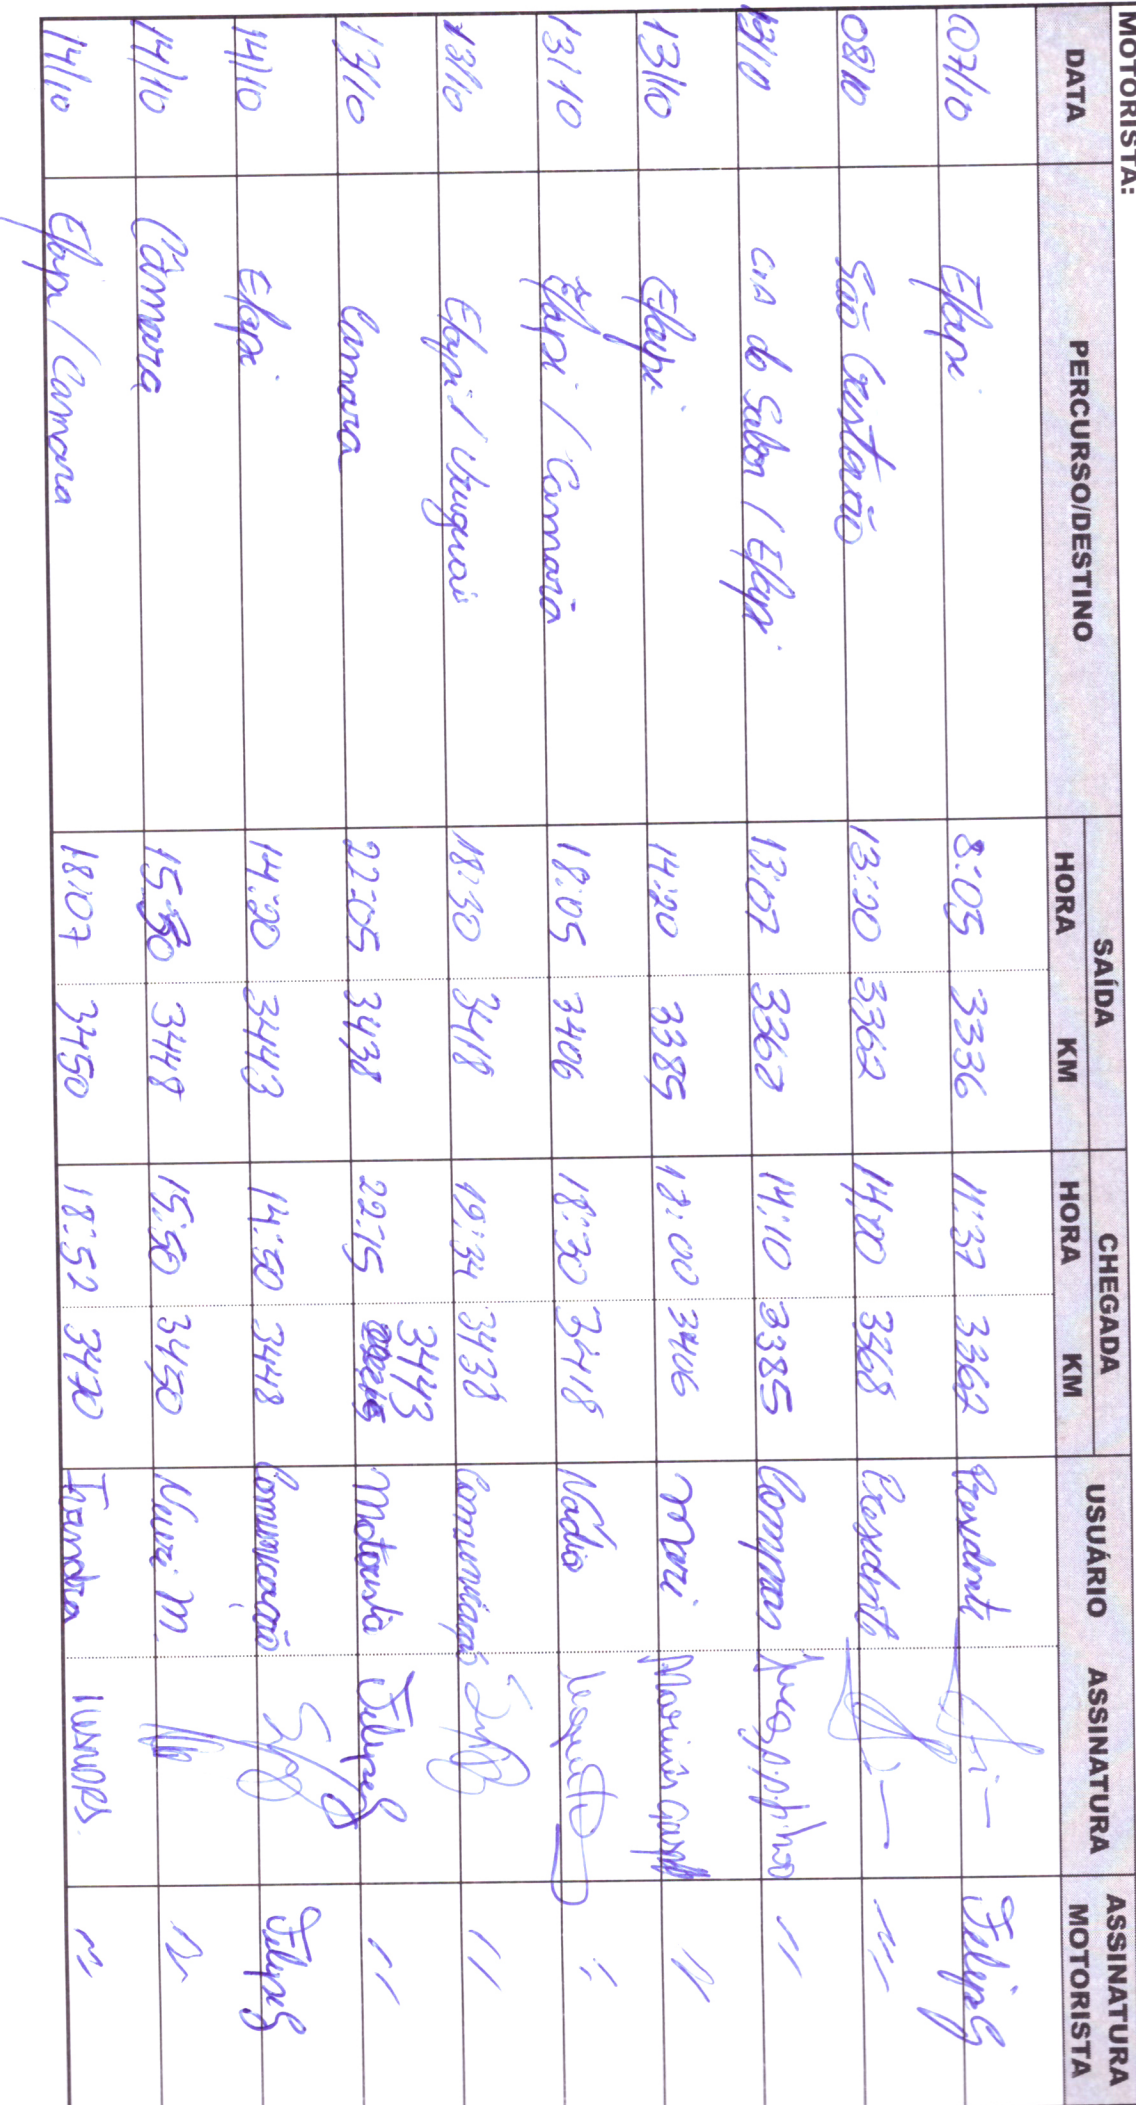 MOTORISTA:
DATA PERCURSO/DESTINO SAÍDA HORA KM CHEGADA HORA KM USUÁRIO ASSINATURA ASSINATURA MOTORISTA
07/10 Efapi 8:05 3336 11:37 3362 Presidente Felipe G
08/10 São Cristovão 13:20 3362 14:00 3368 Presidente "
13/10 do Sabor / Efapi 13:07 3368 14:10 3385 Compras "
13/10 Efapi 14:20 3385 18:00 3406 Mari "
13/10 Efapi / Camara 18:05 3406 18:30 3418 Nadia "
13/10 Efapi / Uruguai 18:30 3418 19:34 3438 Comunicação "
13/10 Camara 22:05 3438 22:15 3443 Motorista Felipe G "
14/10 Efapi 14:20 3443 14:50 3448 Comunicação Felipe G
14/10 Câmara 15:30 3448 15:50 3450 M. "
14/10 Efapi / Camara 18:07 3450 18:52 3470 "